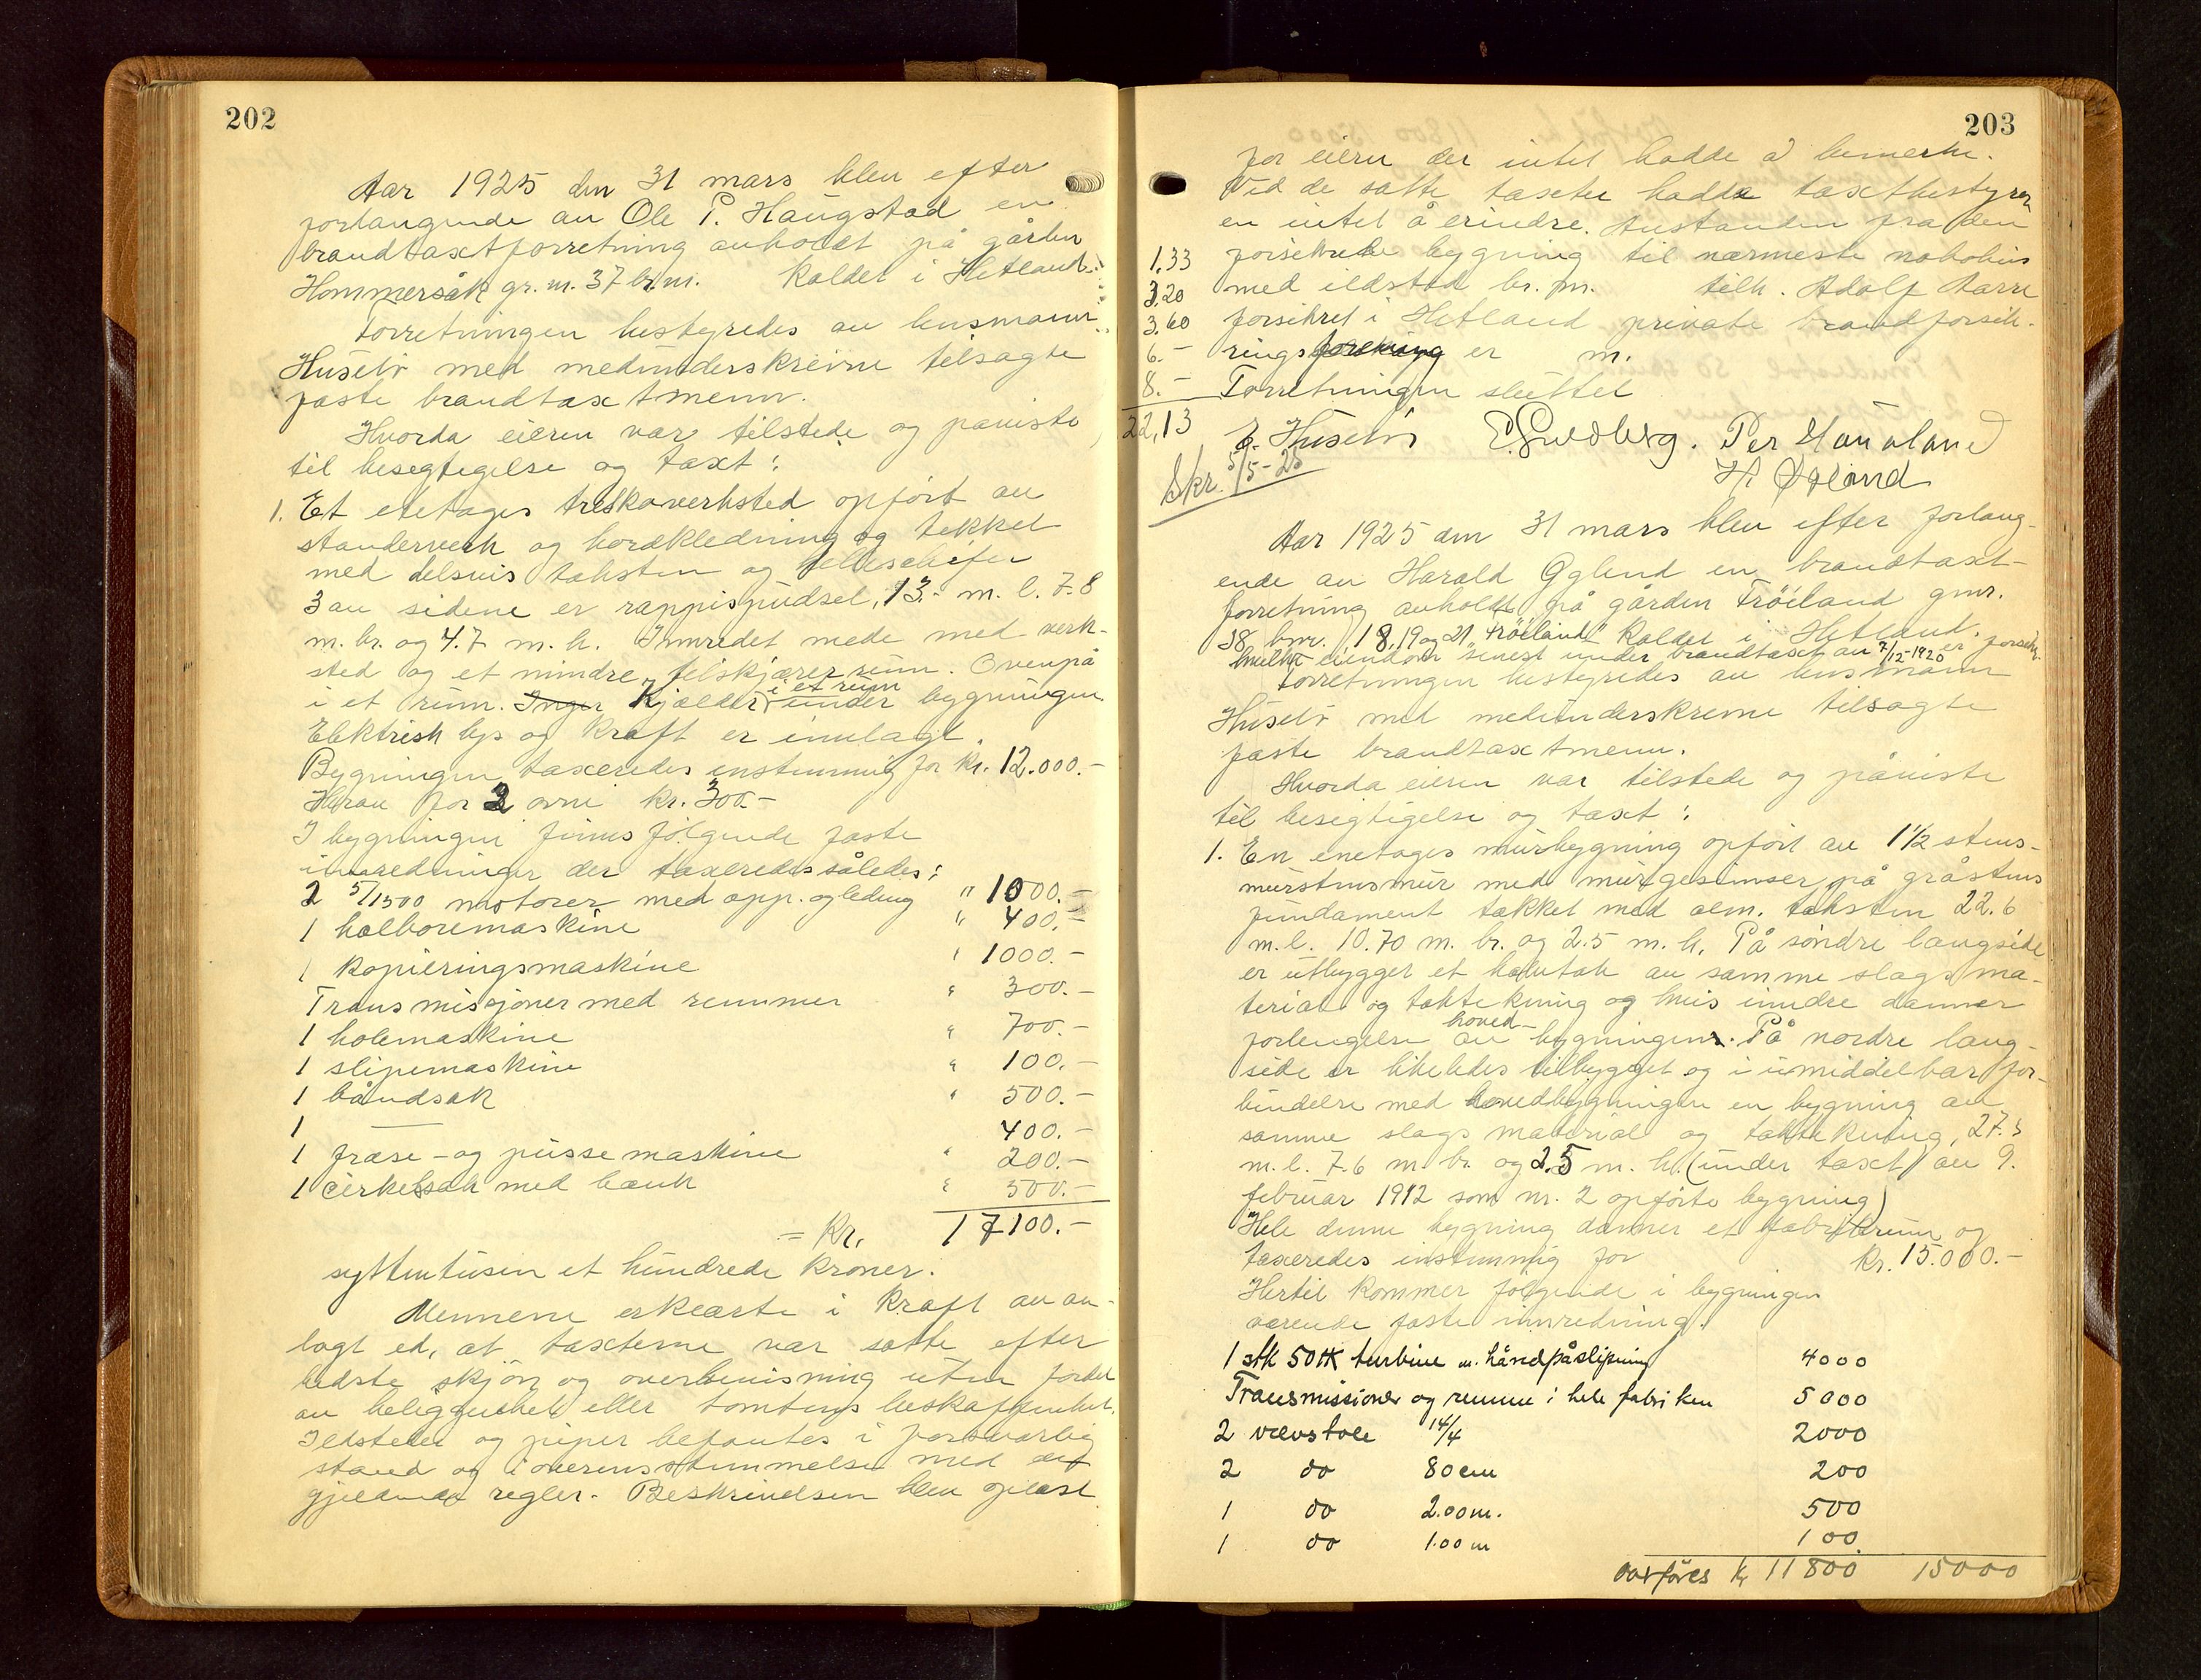 202
Aar 1925 den 31 mars blev efter
forlangende av Ole P. Haugstad en
brandtaxtforretning avholdt på gården
Hommersåk gr. nr. 37 br. nr. kaldet i Hetland.
Forretningen bestyredes av lensmann
Husebø med medunderskrevne tilsagte
faste brandtaxtmenn.
Hvorda eieren var tilstede og paaviste
til besegtigelse og taxt:
1. Et etetages treskoverksted opført av
standerverk og bordkledning og tekket
med delsvis taksten og helleskifer
3 av sidene er rappispudset, 13.- m. l. 7.8
m. br. og 4.7 m. h. Innredet med verk-
sted og et mindre felskjærer rum. Ovenpå
i et rum. Kjælder i et rum under bygningen
Elektrisk lys og kraft er innlagt.
Bygningen taxeredes enstemmig for kr. 12.000.-
Herav for 2 ovne kr. 300.-
I bygningen finnes følgende faste
innredninger der taxeredes således:
2 5/1500 motorer med opp. og ledning " 1000.-
1 hælboremaskine " 400.-
1 kopieringsmaskine " 1000.-
Transmissjoner med remmer " 300.-
1 holemaskine " 700.-
1 slipemaskine " 100.-
1 båndsak " 500.-
1 — 400.-
1 fræse- og pussemaskine " 200.-
1 cirkelsak med bænk " 500.-
= Kr. 17100.-
syttentusen et hundrede kroner.
Mennene erklærte i kraft av av-
lagt ed, at taxterne var satte efter
bedste skjøn og overbevisning uten fordel
av beliggenhet eller tomtens beskaffenhet.
Ildsteder og piper befantes i forsvarlig
stand og i overensstemmelse med de
gjeldende regler. Beskrivelsen blev oplæst
203
for eieren der intet hadde å bemerke.
Ved de satte taxter hadde taxtbestyrer
en intet å erindre. Avstanden fra den
1,33 forsikrede bygning til nærmeste nabohus
3.20 med ildsted br. nr. tilh. Adolf Aarre
3.60 forsikret i Hetland private brandforsik-
6.- ringsforening er m.
8.- Forretningen sluttet
22,13 E. Husebø E. Svedberg. Per Haualand
Skr. 5/5-25 H. Øgland
Aar 1925 den 31 mars blev efter forlang-
ende av Harald Øglend en brandtaxt-
forretning avholdt på gården Frøiland gnr.
38 bnr. 18, 19 og 21 "Frøiland" kaldet i Hetland.
hvilke eiendom senest under brandtaxt av 7/12-1920 er forsikr.
Forretningen bestyredes av lensmann
Husebø med medunderskrevne tilsagte
faste brandtaxtmenn.
Hvorda eieren var tilstede og påviste
til besigtigelse og taxt:
1. En enetages murbygning opført av 1 1/2 stens-
murstensmur med murgesimser på gråstens
fundament tækket med alm. taksten 22.6
m. l. 10.70 m. br. og 2.5 m. h. På søndre langside
er utbygget et halvtak av samme slags ma-
teriale og taktekning og hvis inndre danner
forlengelse av hoved-bygningen. På nordre lang-
side er likeledes tilbygget og i umiddelbar for-
bindelse med hovedbygningen en bygning av
samme slags material og taktekning, 27.5
m. l. 7.6 m. br. og 2.5 m. h. (under taxt av 9.
februar 1912 som nr. 2 opførte bygning)
Hele denne bygning danner et fabrikrum og
taxeredes enstemmig for kr. 15.000.-
Hertil kommer følgende i bygningen
værende faste innredning.
1 stk 50 HK turbine m. håndpåslipning 4000
Transmissioner og remme i hele fabriken 5000
2 vævstole 14/4 2000
2 do 80 cm 200
1 do 2.00 m. 500
1 do 1.00 m 100
overføres Kr 11800 15000